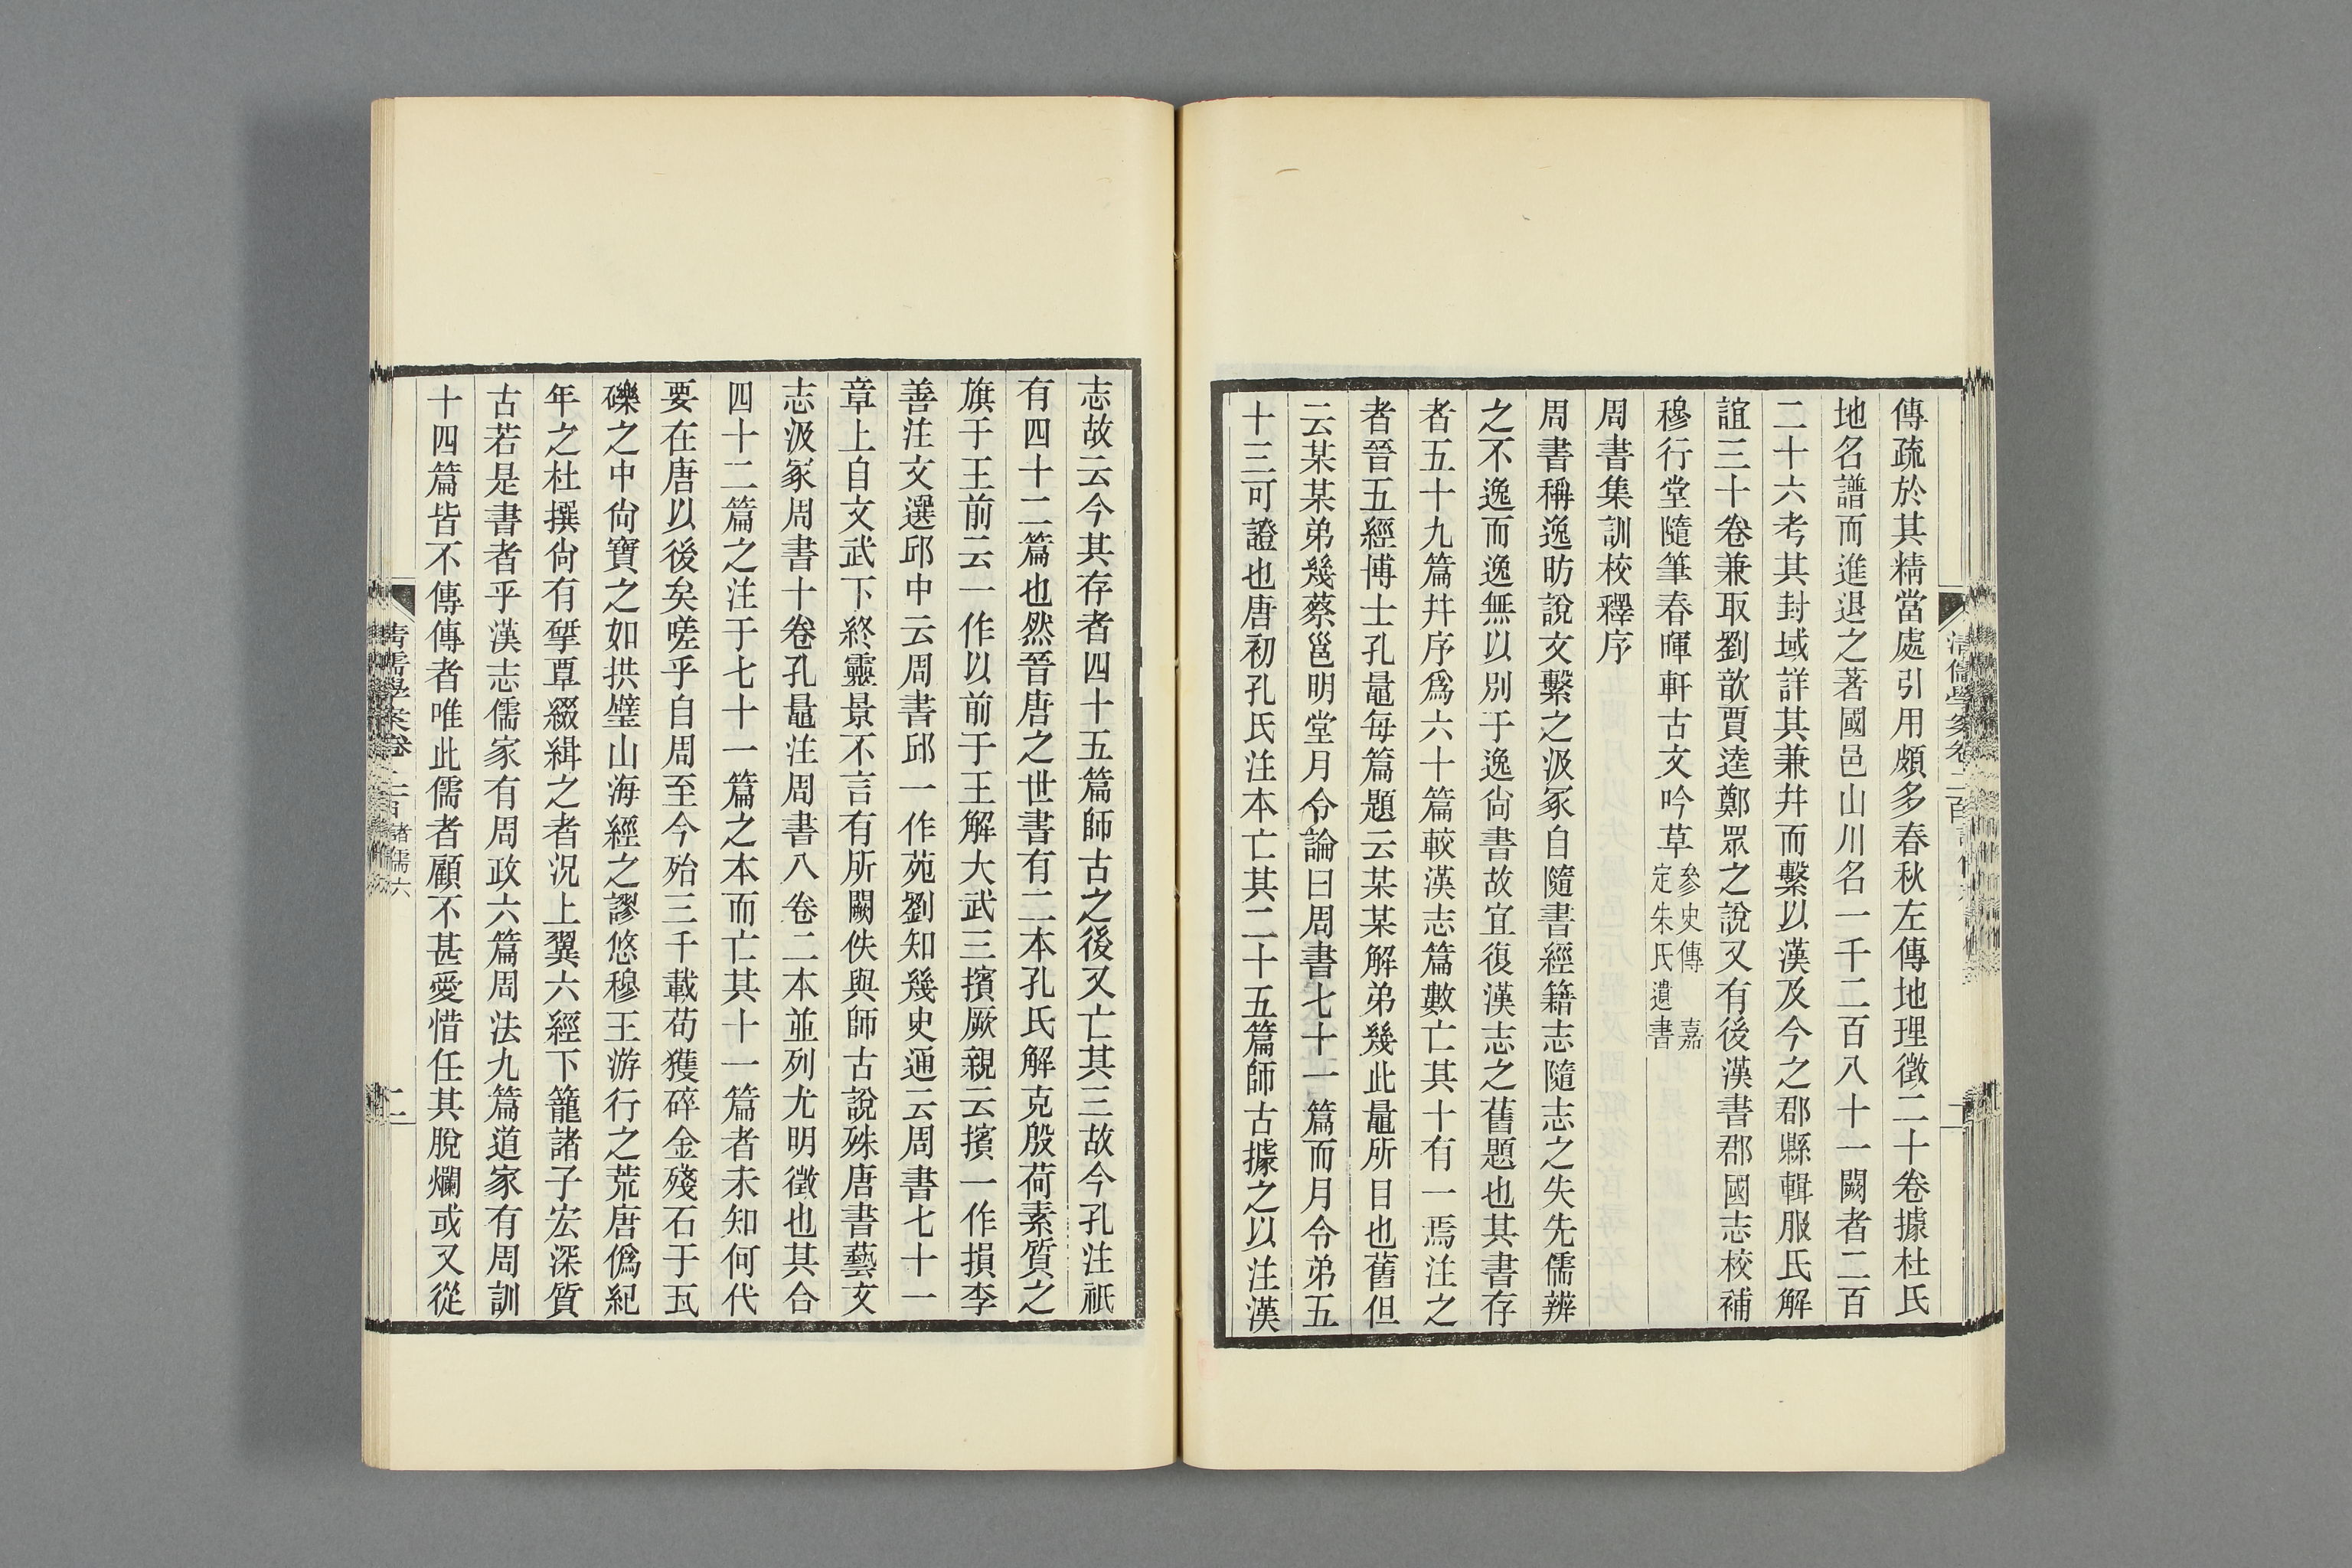 傳疏於其精當處引用頗多春秋左傳地理徵二十卷據杜氏
地名譜而進退之著國邑山川名一千二百八十一闕者二百
二十六考其封域詳其兼幷而繫以漢及今之郡縣輯服氏解
誼三十卷兼取劉歆賈逵鄭眾之說又有後漢書郡國志校補
穆行堂隨筆春暉軒古文吟草參史傳 嘉定朱氏遺書
周書集訓校釋序
周書稱逸昉說文繫之汲冢自隨書經籍志隨志之失先儒辨
之不逸而逸無以別于逸尙書故宜復漢志之舊題也其書存
者五十九篇幷序爲六十篇較漢志篇數亡其十有一焉注之
者晉五經博士孔鼂每篇題云某某解弟幾此鼂所目也舊但
云某某弟幾蔡邕明堂月令論曰周書七十一篇而月令弟五
十三可證也唐初孔氏注本亡其二十五篇師古據之以注漢
志故云今其存者四十五篇師古之後又亡其三故今孔注祇
有四十二篇也然晉唐之世書有二本孔氏解克殷荷素質之
旗于王前云一作以前于王解大武三擯厥親云擯一作損李
善注文選邱中云周書邱一作苑劉知幾史通云周書七十一
章上自文武下終靈景不言有所闕佚與師古說殊唐書藝文
志汲冢周書十卷孔鼂注周書八卷二本並列尤明徵也其合
四十二篇之注于七十一篇之本而亡其十一篇者未知何代
要在唐以後矣嗟乎自周至今殆三千載苟獲碎金殘石于瓦
礫之中尙寶之如拱璧山海經之謬悠穆王游行之荒唐僞紀
年之杜撰尙有揅覃綴緝之者況上翼六經下籠諸子宏深質
古若是書者乎漢志儒家有周政六篇周法九篇道家有周訓
十四篇皆不傳傳者唯此儒者顧不甚愛惜任其脫爛或又從
清儒學案卷二百 諸儒六
二